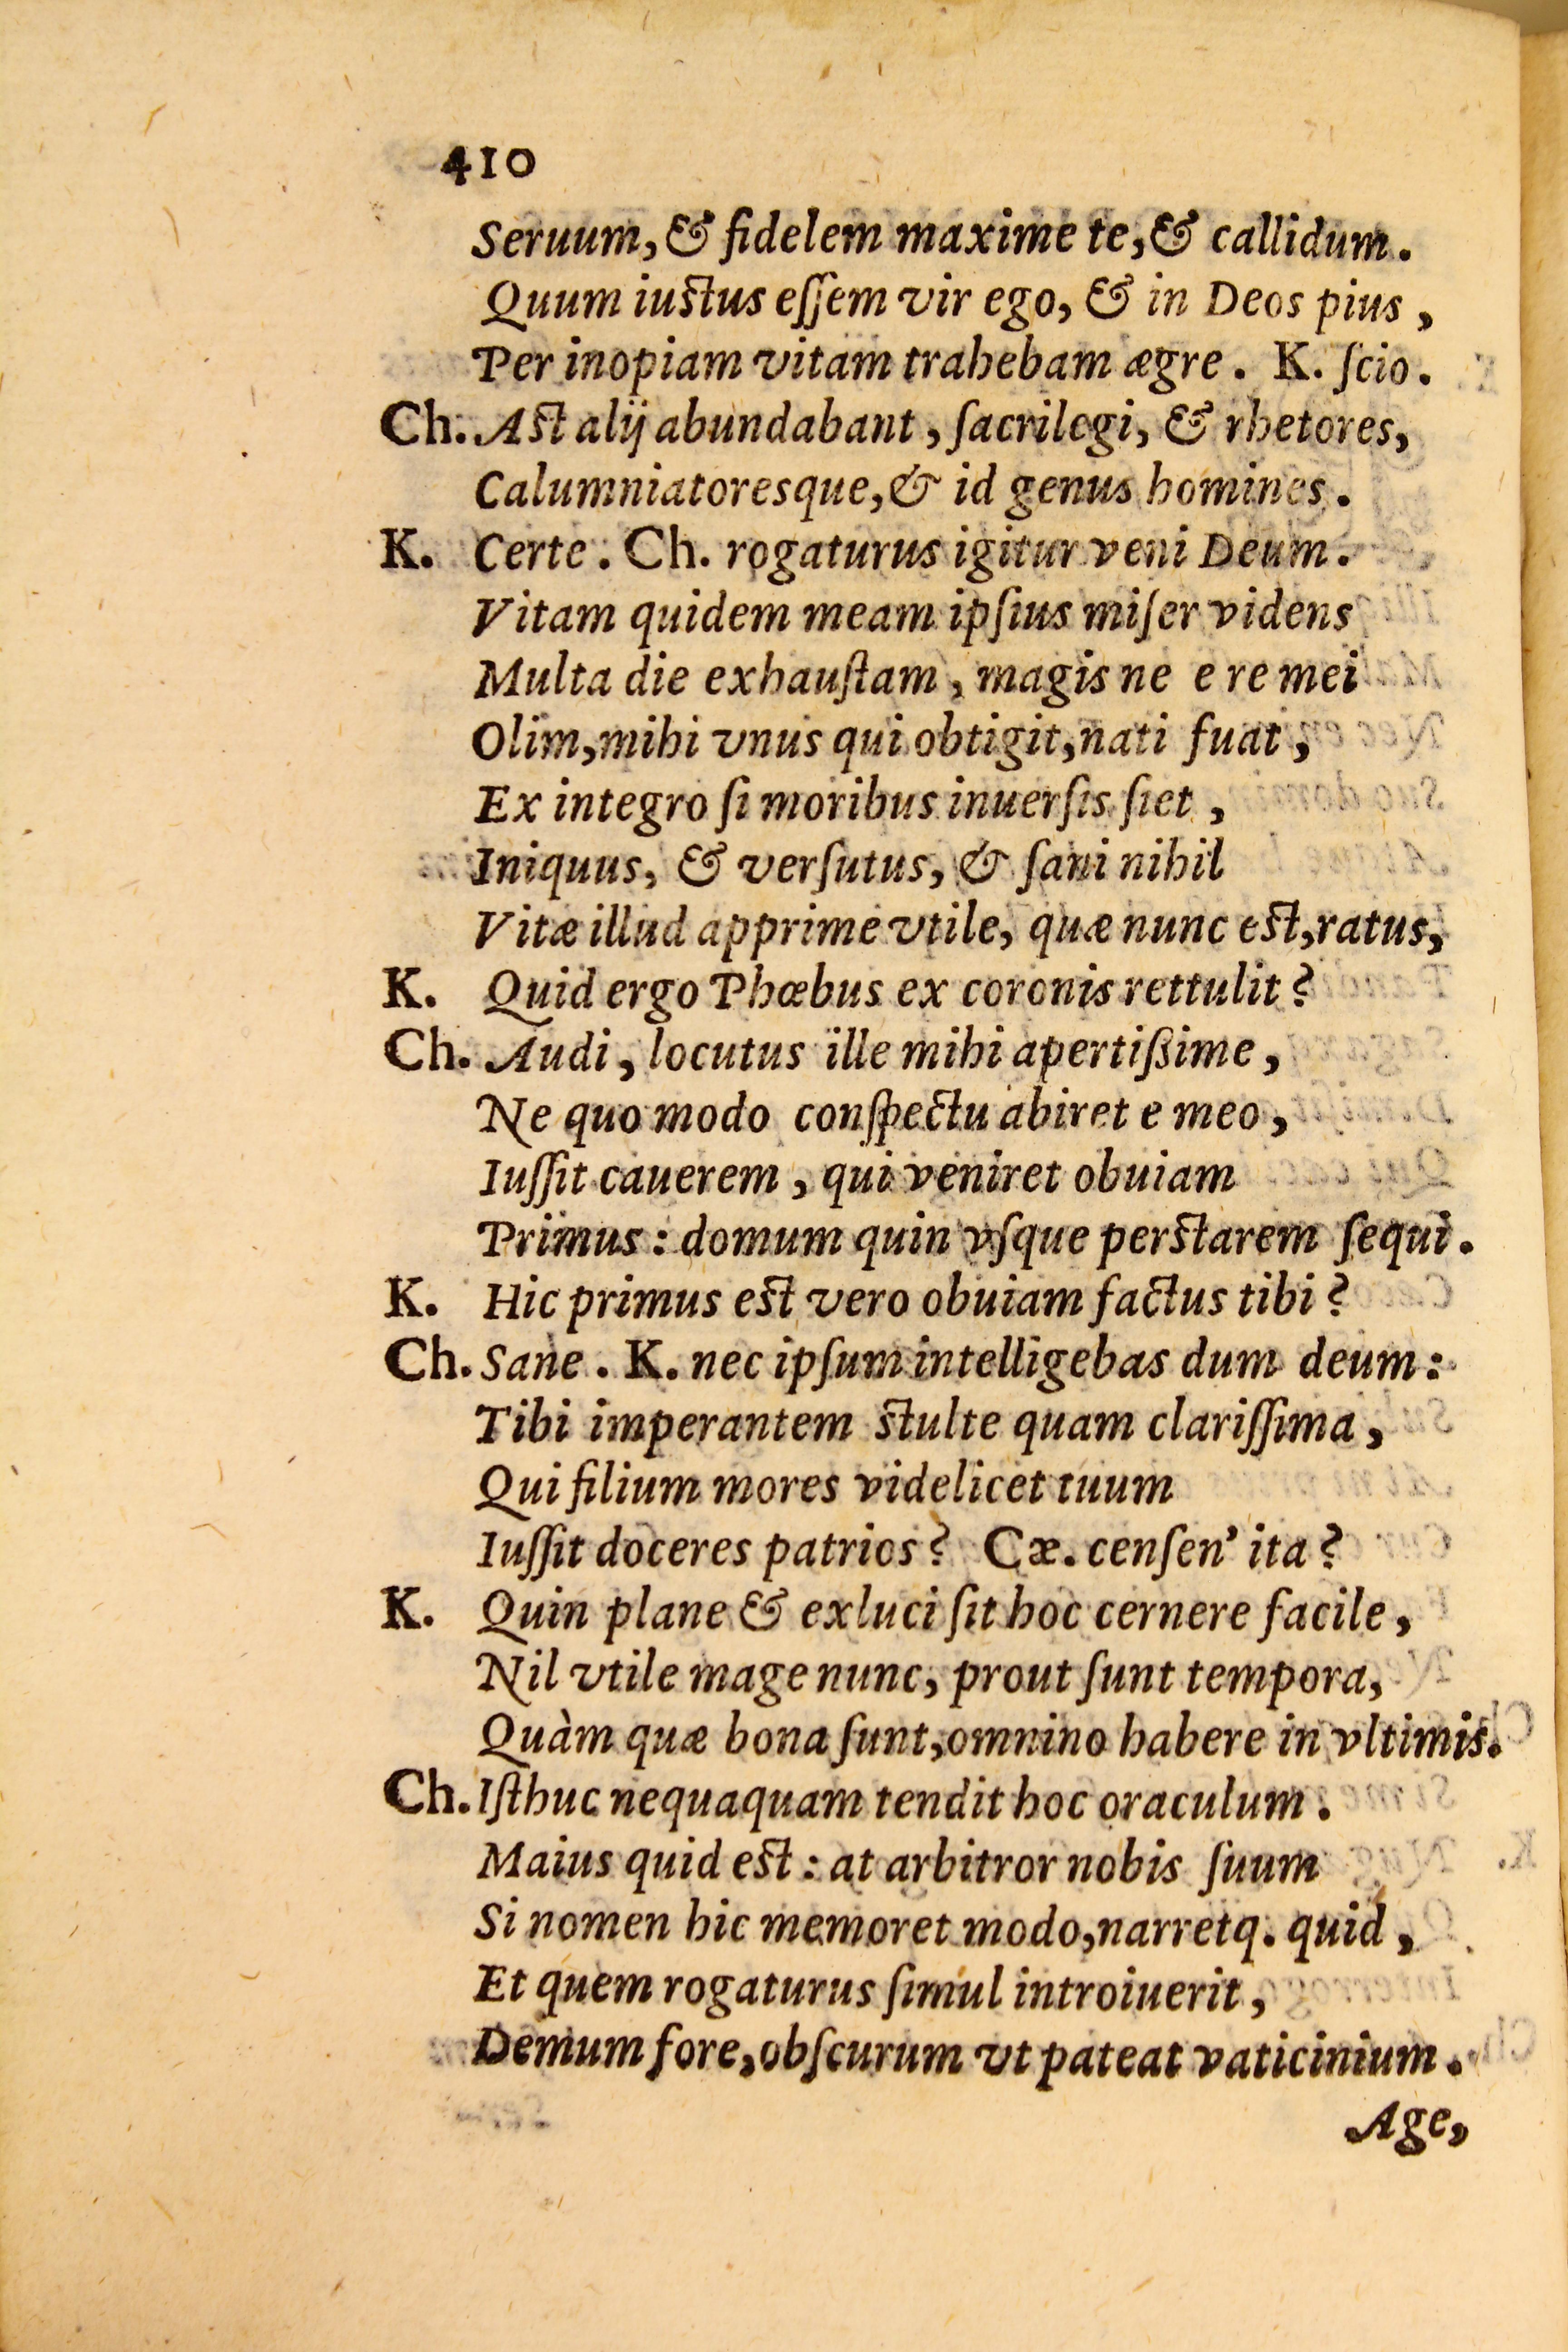 410
Seruum, & fidelem maxime te, & callidum.
Quum iustus eſſem vir ego, & in Deos pius,
Per inopiam vitam trahebam ægre. K. ſcio.
Ch. Ast alij abundabant, ſacrilegi, & rhetores,
Calumniatoresque, & id genus homines.
K. Certe. Ch. rogaturus igitur veni Deum.
Vitam quidem meam ipſius miſer videns
Multa die exhauſtam, magis ne e re mei
Olim, mihi vnus qui obtigit, nati fuat,
Ex integro ſi moribus inuerſis ſiet,
Iniquus, & verſutus, & ſani nihil
Vitæ illud apprime vtile, quæ nunc est, ratus,
K. Quid ergo Phœbus ex coronis rettulit?
Ch. Audi, locutus ille mihi apertiſsime,
Ne quo modo conſpectu abiret e meo,
Iuſſit cauerem, qui veniret obuiam
Primus: domum quin vſque perstarem ſequi.
K. Hic primus est vero obuiam factus tibi?
Ch. Sane. K. nec ipſum intelligebas dum deum:
Tibi imperantem stulte quam clariſſima,
Qui filium mores videlicet tuum
Iuſſit doceres patrios? Cæ. cenſen' ita?
K. Quin plane & exluci ſit hoc cernere facile,
Nil vtile mage nunc, prout ſunt tempora,
Quàm quæ bona ſunt, omnino habere in vltimis.
Ch. Iſthuc nequaquam tendit hoc oraculum.
Maius quid est: at arbitror nobis ſuum
Si nomen hic memoret modo, narretq. quid,
Et quem rogaturus ſimul introiuerit,
Demum fore, obſcurum vt pateat vaticinium.
Age,